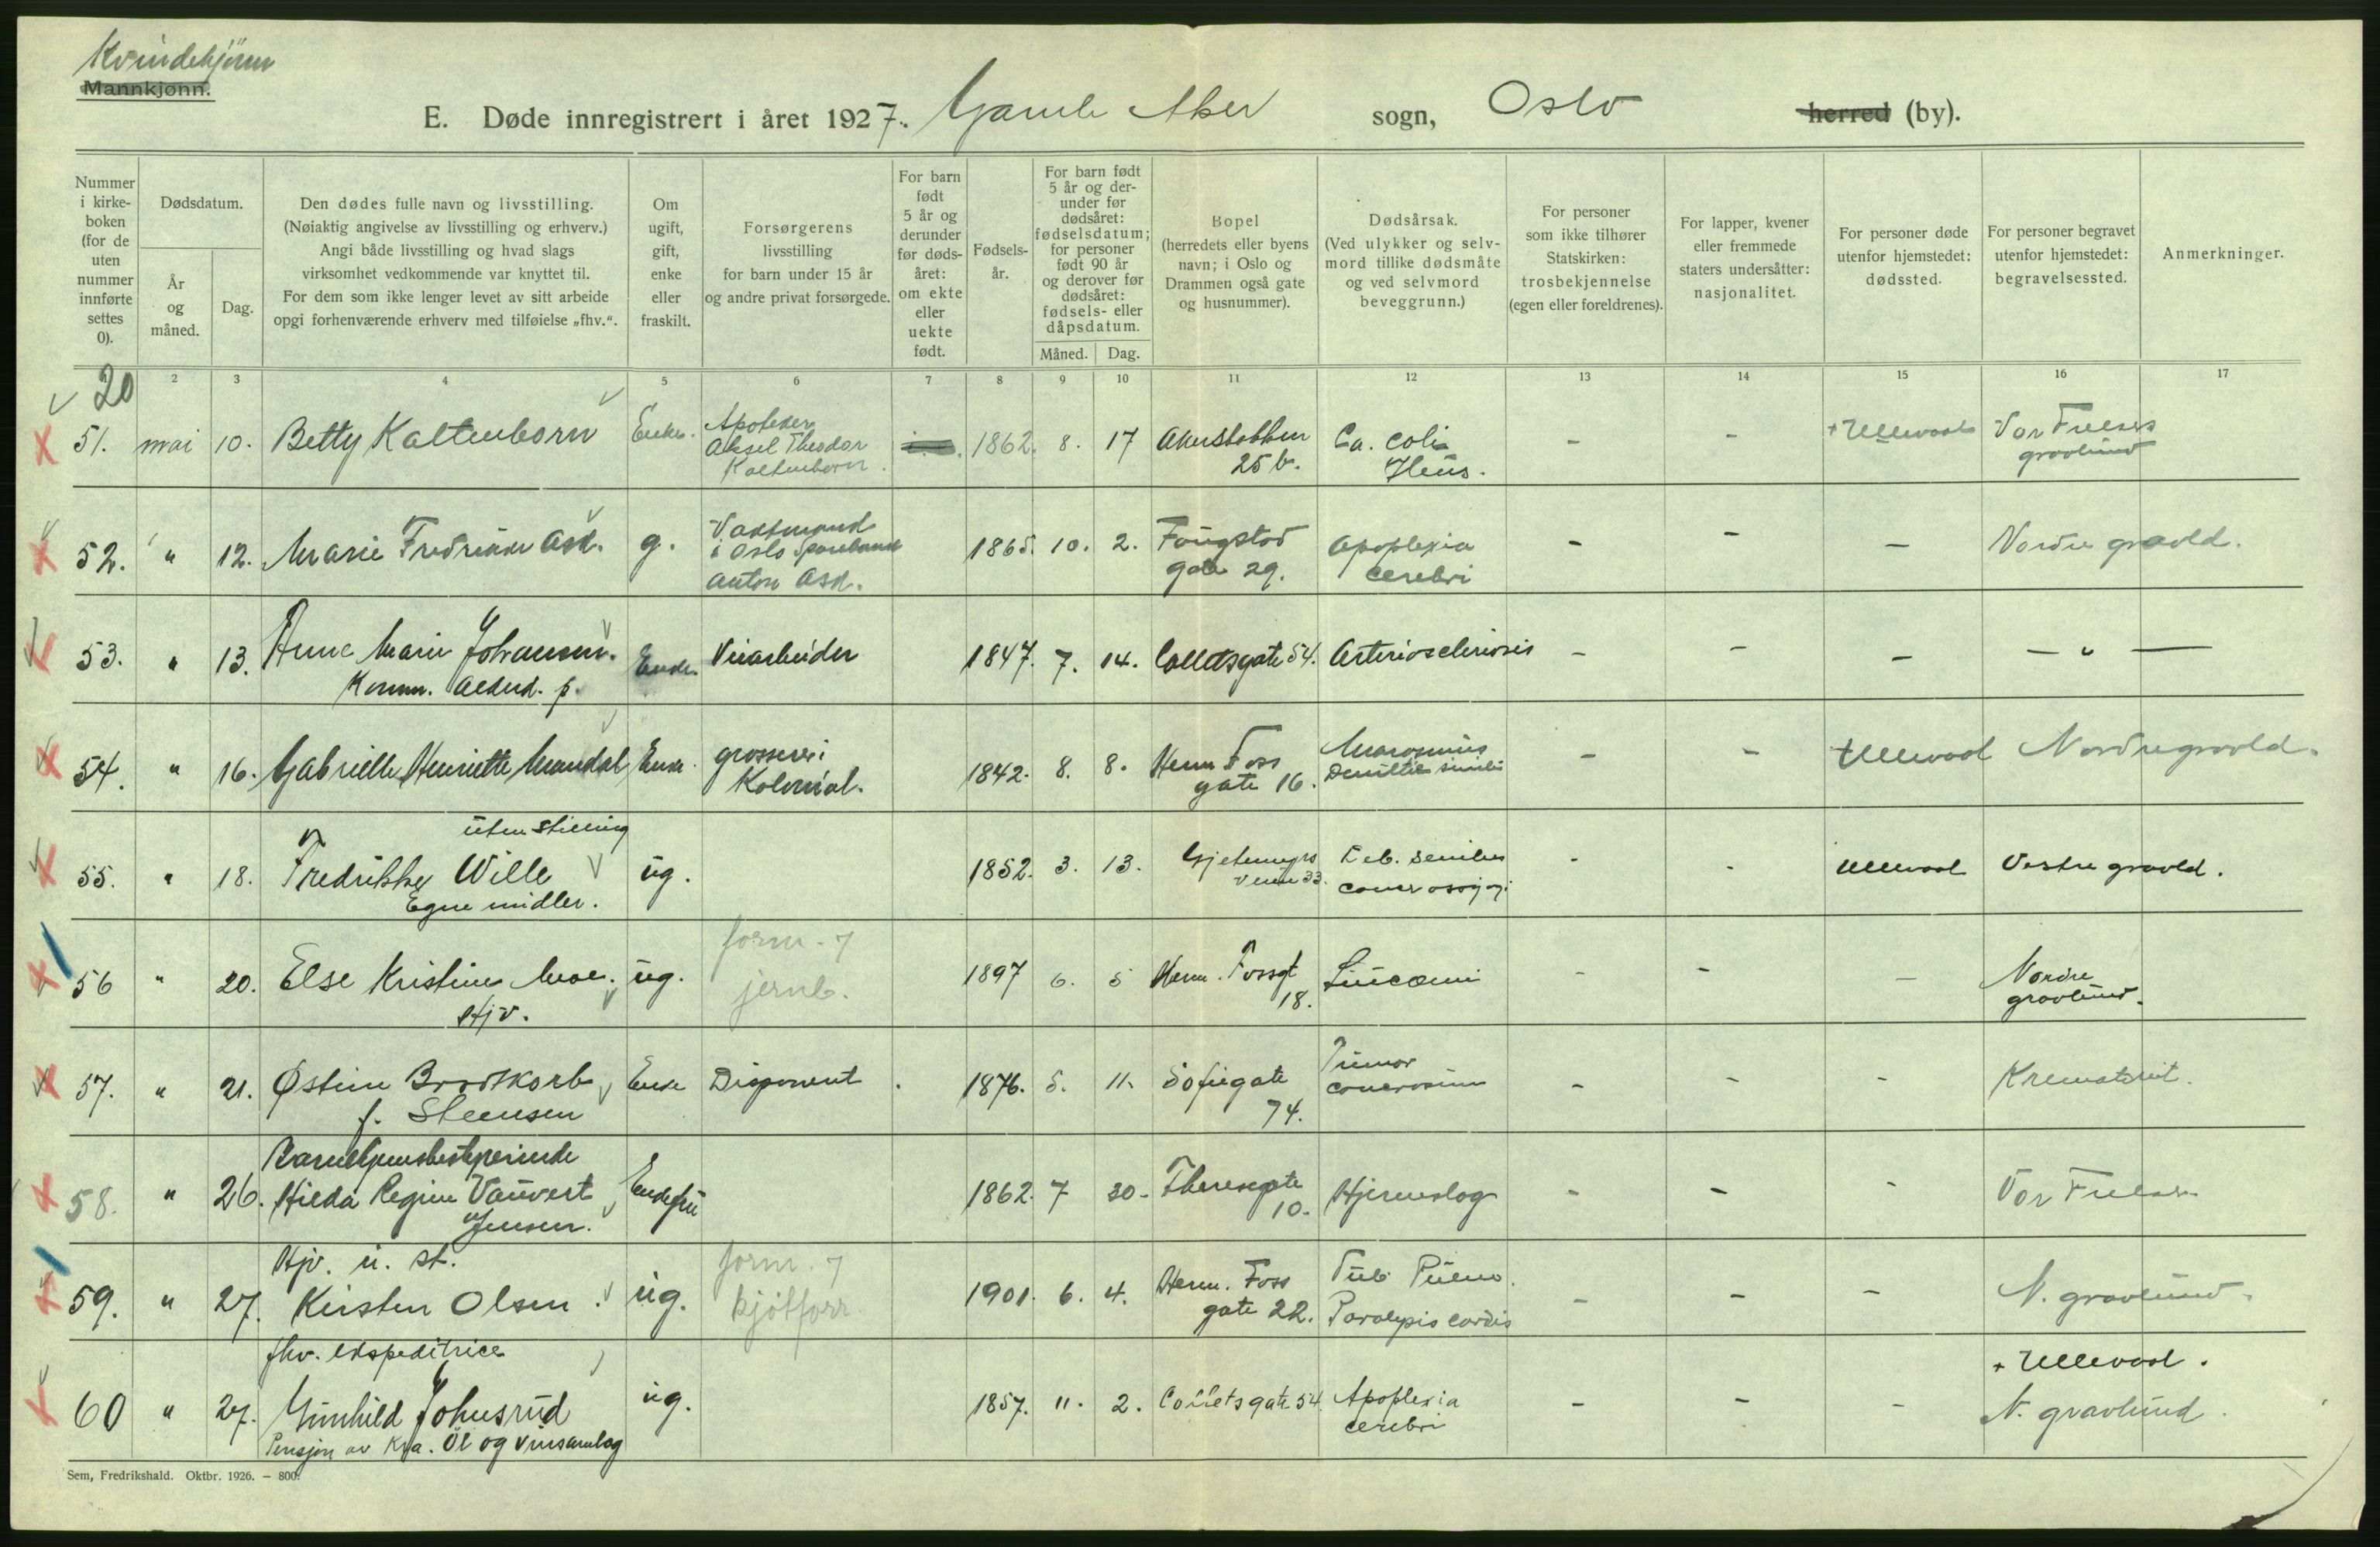 Kvindekjønn
Mannkjønn.
E. Døde innregistrert i året 1927. Gamle Aker sogn, Oslo herred (by).
Nummer i kirkeboken (for de uten nummer innførte settes 0).
Dødsdatum.
År og måned.
Dag.
Den dødes fulle navn og livsstilling.
(Nøiaktig angivelse av livsstilling og erhverv.)
Angi både livsstilling og hvad slags
virksomhet vedkommende var knyttet til.
For dem som ikke lenger levet av sitt arbeide
opgi forhenværende erhverv med tilføielse „fhv.“.
Om ugift, gift, enke eller fraskilt.
Forsørgerens
livsstilling
for barn under 15 år
og andre privat forsørgede.
For barn født 5 år og derunder før dødsåret: om ekte eller uekte født.
Fødselsår.
For barn født 5 år og derunder før dødsåret: fødselsdatum; for personer født 90 år og derover før dødsåret: fødsels- eller dåpsdatum.
Måned.
Dag.
Bopel
(herredets eller byens
navn; i Oslo og
Drammen også gate
og husnummer).
Dødsårsak.
(Ved ulykker og selvmord tillike dødsmåte
og ved selvmord
beveggrunn.)
For personer
som ikke tilhører
Statskirken:
trosbekjennelse
(egen eller foreldrenes).
For lapper, kvener
eller fremmede
staters undersåtter:
nasjonalitet.
For personer døde
utenfor hjemstedet:
dødssted.
For personer begravet
utenfor hjemstedet:
begravelsessted.
Anmerkninger.
20 2 3 4 5 6 7 8 9 10 11 12 13 14 15 16 17
51. mai 10. Betty Kaltenborn Enke. Apoteker Aksel Theodor Kaltenborn. 1862. 8. 17 Akersbakken 25 b. Ca. coli Ileus. - - + Ullevaal Vor Frelsers gravlund
52. " 12. Marie Fredrikke Ask. g. Vaktmand i Oslo Sparebank Anton Ask. 1865. 10. 2. Fougstad gate 29. Apoplexia cerebri - - - Nordre gravld.
53. " 13. Anne Marie Johansen. Komm. Alderd. p. Enke. Veiarbeider 1847. 7. 14. Colletsgate 54. Arteriosclerosis - - - — " —
54. " 16. Gabrielle Henriette Mandal Enke. grosserer i Kolonial. 1842. 8. 8. Herm Foss gate 16. Marasmus senilis - - + Ullevaal Nordre gravld.
55. " 18. uten stilling Fredrikke Wille Egne midler. ug. 1852. 3. 13. Gjetemyrs veien 33. Deb. senilis cancer - - Ullevaal Vestre gravld.
56 " 20. Else Kristine Moe. Hjv. ug. form. 7 jernb. 1897 6. 5 Herm. Fossgt 18. Leucæmi - - - Nordre gravlund.
57. " 21. Østine Brodtkorb f. Steensen Enke Disponent. 1876. 5. 11. Sofiegate 74. Tumor - - - Krematoriet.
58. " 26. Barnehjemsbestyrerinde Hilda Regine Vauvert Jensen. Enkefru 1862. 7 30. Theresegate 10. Hjerneslag - - - Vor Frelser
59. " 27. Hjv. u. st. Kirsten Olsen. ug. form. 7 kjøtforr. 1901. 6. 4. Herm. Foss gate 22. Tub Pulm. Paralysis cordis - - - N. gravlund.
60 " 27. fhv. ekspeditrice Gunhild Johnsrud Pensjon av Kra. Øl og vinsamlag ug. 1857. 11. 2. Colletsgate 54. Apoplexia cerebri - - - + Ullevaal. N. gravlund.
Sem, Fredrikshald. Oktbr. 1926. – 800.